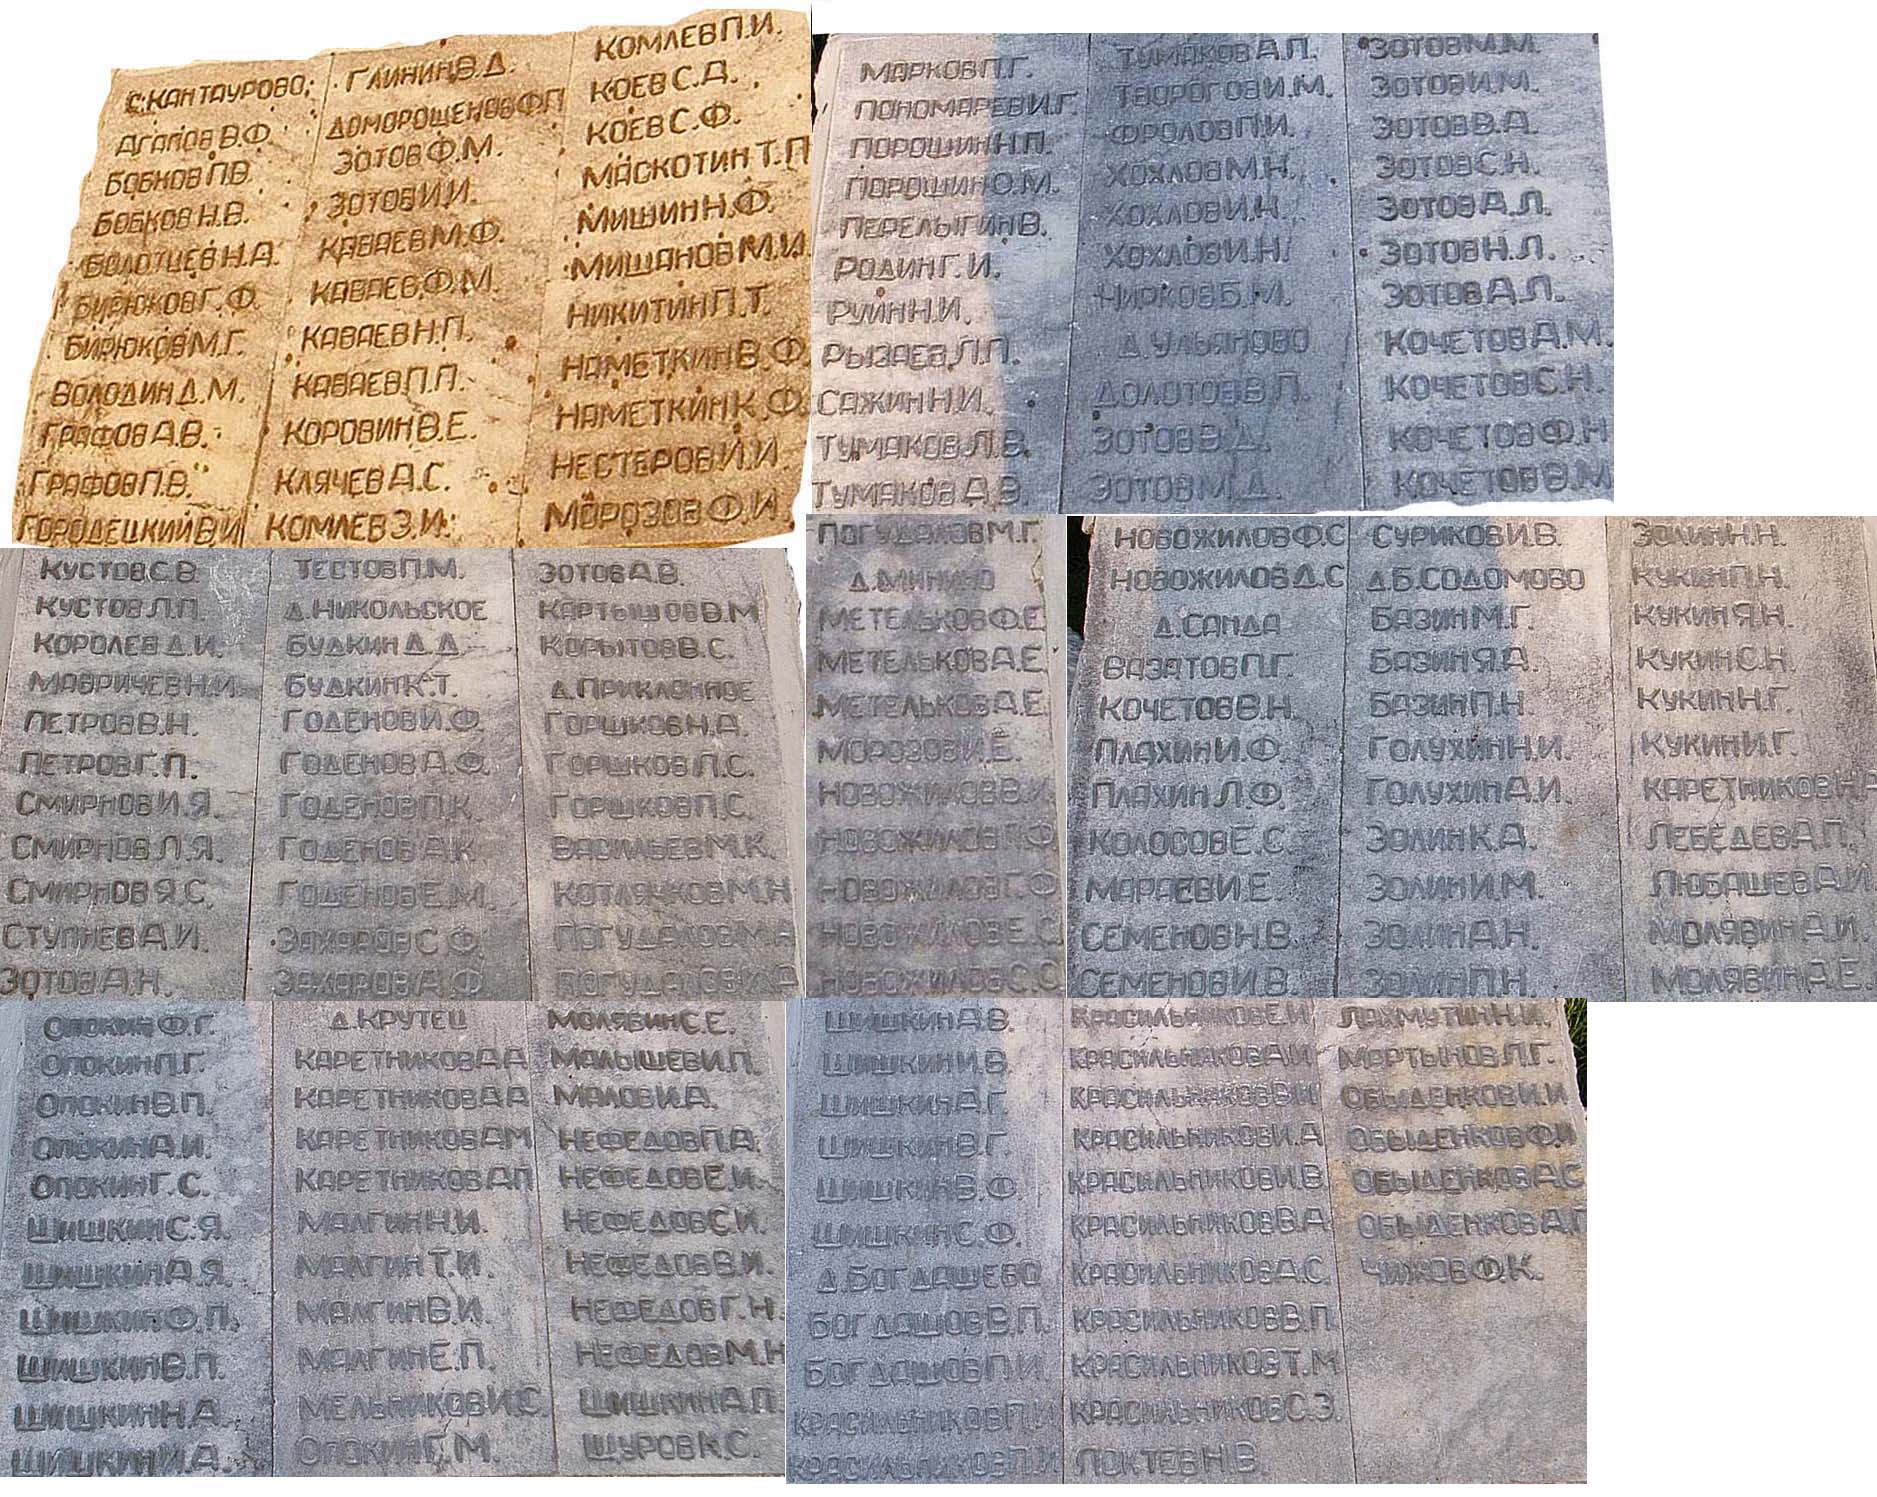 С.КАНТАУРОВО
АГАПОВ В.Ф.
БОБКОВ П.В.
БОБКОВ Н.В.
БОЛОТЦЕВ Н.А.
БИРЮКОВ Г.Ф.
БИРЮКОВ М.Г.
ВОЛОДИН Д.М.
ГРАФОВ А.В.
ГРАФОВ П.В.
ГОРОДЕЦКИЙ В.И
ГЛИНИН В.Д.
ДОМОРОЩЕНОВ Ф.П
ЗОТОВ Ф.М.
ЗОТОВ И.И.
КАВАЕВ М.Ф.
КАВАЕВ Ф.М.
КАВАЕВ Н.П.
КАВАЕВ П.П.
КОРОВИН В.Е.
КЛЯЧЕВ А.С.
КОМЛЕВ З.И.
КОМЛЕВ П.И.
КОЕВ С.Д.
КОЕВ С.Ф.
МАСКОТИН Т.П
МИШИН Н.Ф.
МИШАНОВ М.И.
НИКИТИН П.Т.
НАМЕТКИН В.Ф.
НАМЕТКИН К.Ф.
НЕСТЕРОВ И.И.
МОРОЗОВ Ф.И.
МАРКОВ П.Г.
ПОНОМАРЕВ И.Г.
ПОРОШИН Н.П.
ПОРОШИН О.М.
ПЕРЕЛЫГИН В.
РОДИН Г.И.
РУИН Н.И.
РЫЗАЕВ Л.П.
САЖИН Н.И.
ТУМАКОВ Л.В.
ТУМАКОВ А.В.
ТУМАКОВ А.П.
ТВОРОГОВ И.М.
ФРОЛОВ П.И.
ХОХЛОВ М.Н.
ХОХЛОВ И.Н.
ХОХЛОВ И.Н.
ЧИРКОВ Б.М.
Д.УЛЬЯНОВО
ДОЛОТОВ В.П.
ЗОТОВ В.Д.
ЗОТОВ М.Д.
ЗОТОВ М.М.
ЗОТОВ И.М.
ЗОТОВ В.А.
ЗОТОВ С.Н.
ЗОТОВ А.Л.
ЗОТОВ Н.Л.
ЗОТОВ А.Л.
КОЧЕТОВ А.М.
КОЧЕТОВ С.Н.
КОЧЕТОВ Ф.Н
КОЧЕТОВ В.М
КУСТОВ С.В.
КУСТОВ Л.П.
КОРОЛЕВ Д.И.
МАВРИЧЕВ Н.И.
ПЕТРОВ В.Н.
ПЕТРОВ Г.П.
СМИРНОВ И.Я.
СМИРНОВ Л.Я.
СМИРНОВ Я.С.
СТУПНЕВ А.И.
ЗОТОВ А.Н.
ТЕСТОВ П.М.
Д.НИКОЛЬСКОЕ
БУДКИН Д.Д.
БУДКИН К.Т.
ГОДЕНОВ И.Ф.
ГОДЕНОВ А.Ф.
ГОДЕНОВ П.К.
ГОДЕНОВ А.К.
ГОДЕНОВ Е.М.
ЗАХАРОВ С.Ф.
ЗАХАРОВ А.Ф
ЗОТОВ А.В.
КАРТЫШОВ В.М
КОРЫТОВ В.С.
Д.ПРИКЛОННОЕ
ГОРШКОВ Н.А.
ГОРШКОВ Л.С.
ГОРШКОВ П.С.
ВАСИЛЬЕВ М.К.
КОТЛЯЧКОВ М.Н
ПОГУДАЛОВ М.А
ПОГУДАЛОВ К.А
ПОГУДАЛОВ М.Г.
Д.МИНИНО
МЕТЕЛЬКОВ Ф.Е.
МЕТЕЛЬКОВ А.Е.
МЕТЕЛЬКОВ А.Е.
МОРОЗОВ И.Е.
НОВОЖИЛОВ В.И.
НОВОЖИЛОВ П.Ф
НОВОЖИЛОВ Г.Ф
НОВОЖИЛОВ Е.С.
НОВОЖИЛОВ С.С.
НОВОЖИЛОВ Ф.С
НОВОЖИЛОВ Д.С
Д.САНДА
ВАЗАТОВ П.Г.
КОЧЕТОВ В.Н.
ПЛАХИН И.Ф.
ПЛАХИН Л.Ф.
КОЛОСОВ Е.С.
МАРАЕВ И.Е.
СЕМЕНОВ Н.В.
СЕМЕНОВ И.В.
СУРИКОВ И.В.
Д.Б.СОДОМОВО
БАЗИН М.Г.
БАЗИН Я.А.
БАЗИН П.Н.
ГОЛУХИН Н.И.
ГОЛУХИН А.И.
ЗОЛИН К.А.
ЗОЛИН И.М.
ЗОЛИН А.Н.
ЗОЛИН П.Н.
ЗОЛИН Н.Н.
КУКИН П.Н.
КУКИН Я.Н.
КУКИН С.Н.
КУКИН Н.Г.
КУКИН И.Г.
КАРЕТНИКОВ Н.А
ЛЕБЕДЕВ А.П.
ЛЮБАШЕВ А.И.
МОЛЯВИН А.И.
МОЛЯВИН А.Е.
ОПОКИН Ф.Г.
ОПОКИН П.Г.
ОПОКИН В.П.
ОПОКИН А.И.
ОПОКИН Г.С.
ШИШКИН С.Я.
ШИШКИН А.Я.
ШИШКИН Ф.П.
ШИШКИН В.П.
ШИШКИН Н.А.
ШИШКИН И.А.
Д.КРУТЕЦ
КАРЕТНИКОВ А А
КАРЕТНИКОВ А А
КАРЕТНИКОВ А М
КАРЕТНИКОВ А П
МАЛГИН Н.И.
МАЛГИН Т.И.
МАЛГИН В.И.
МАЛГИН Е.П.
МЕЛЬНИКОВ И.С.
ОПОКИН Г.М.
МОЛЯВИН С.Е.
МАЛЫШЕВ И.П.
МАЛОВ И.А.
НЕФЕДОВ П.А.
НЕФЕДОВ Е.И.
НЕФЕДОВ С.И.
НЕФЕДОВ В.И.
НЕФЕДОВ Г.Н.
НЕФЕДОВ М.Н
ШИШКИН А.П.
ЩУРОВ К.С.
ШИШКИН А.В.
ШИШКИН И.В.
ШИШКИН А.Г.
ШИШКИН В.Г.
ШИШКИН В.Ф.
ШИШКИН С.Ф.
Д.БОГДАШЕВО
БОГДАШОВ В.П.
БОГДАШОВ П.И.
КРАСИЛЬНИКОВ П.И
КРАСИЛЬНИКОВ П.И
КРАСИЛЬНИКОВ Е.И
КРАСИЛЬНИКОВ А.И
КРАСИЛЬНИКОВ В.И
КРАСИЛЬНИКОВ И.А
КРАСИЛЬНИКОВ И.В.
КРАСИЛЬНИКОВ В.А
КРАСИЛЬНИКОВ А.С.
КРАСИЛЬНИКОВ В.П
КРАСИЛЬНИКОВ Т.М
КРАСИЛЬНИКОВ С.З.
ЛОКТЕВ Н.В.
ЛАХМУТИН Н.И.
МАРТЫНОВ Л.Г.
ОБЫДЕНКОВ И.И
ОБЫДЕНКОВ Ф.И
ОБЫДЕНКОВ А.С
ОБЫДЕНКОВ А.П
ЧИЖОВ Ф.К.